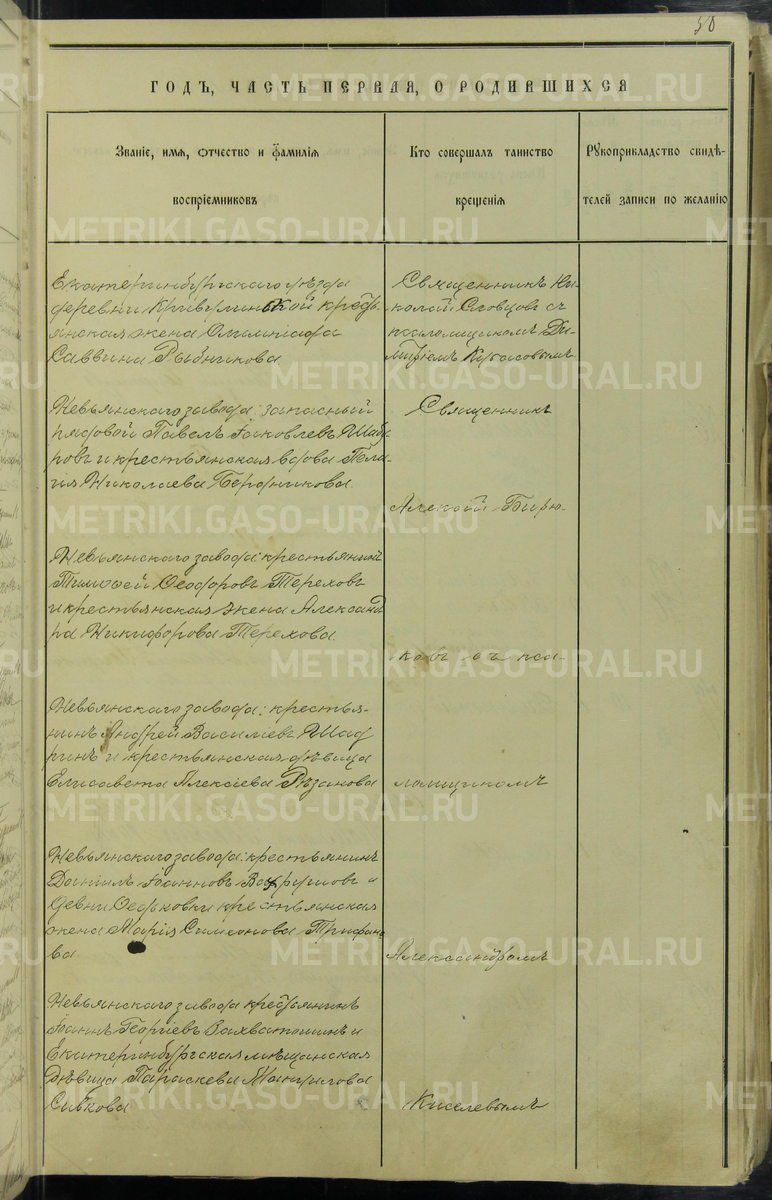 50
ГОДЪ, ЧАСТЬ ПЕРВАЯ, О РОДИВШИХСЯ
Званіе, имя, отчество и фамилія
воспріемниковъ
Кто совершалъ таинство
крещенія
Рукоприкладство свидѣ-
телей записи по желанію
Екатеринбургскаго уѣзда
деревни крестъ-
янская жена Олимпіада
Саввина Рыбникова
Священникъ Ни-
колай Словцовъ съ
псаломщикомъ Ди-
митріемъ
Невьянскаго завода: запасный
рядовой Павелъ Іаковлевъ
ровъ и крестьянская вдова Пела-
гія Николаева Бердникова.
Священникъ
Алексій Бирю-
Невьянскаго завода: крестьянинъ
Тимофей Ѳеодоровъ Тереховъ
и крестьянская жена Александ
ра Никифорова Терехова.
ковъ съ пса-
Невьянскаго завода: крестья-
нинъ Андрей Василіевъ Шад
ринъ и крестьянская дѣвица
Елисавета Алексіева Рѣзанова
ломщикомъ
Невьянскаго завода: крестьянинъ
Даніилъ Іоанновъ Вахрушовъ и
Девни Ѳедьковки крестьянская
жена Марія Симеонова Трифано
ва
Александромъ
Невьянскаго завода крестьянинъ
Іоаннъ Георгіевъ и
Екатеринбургская мѣщанская
дѣвица Параскева
Сивкова
Киселевымъ
METRIKI.GASO-URAL.RU